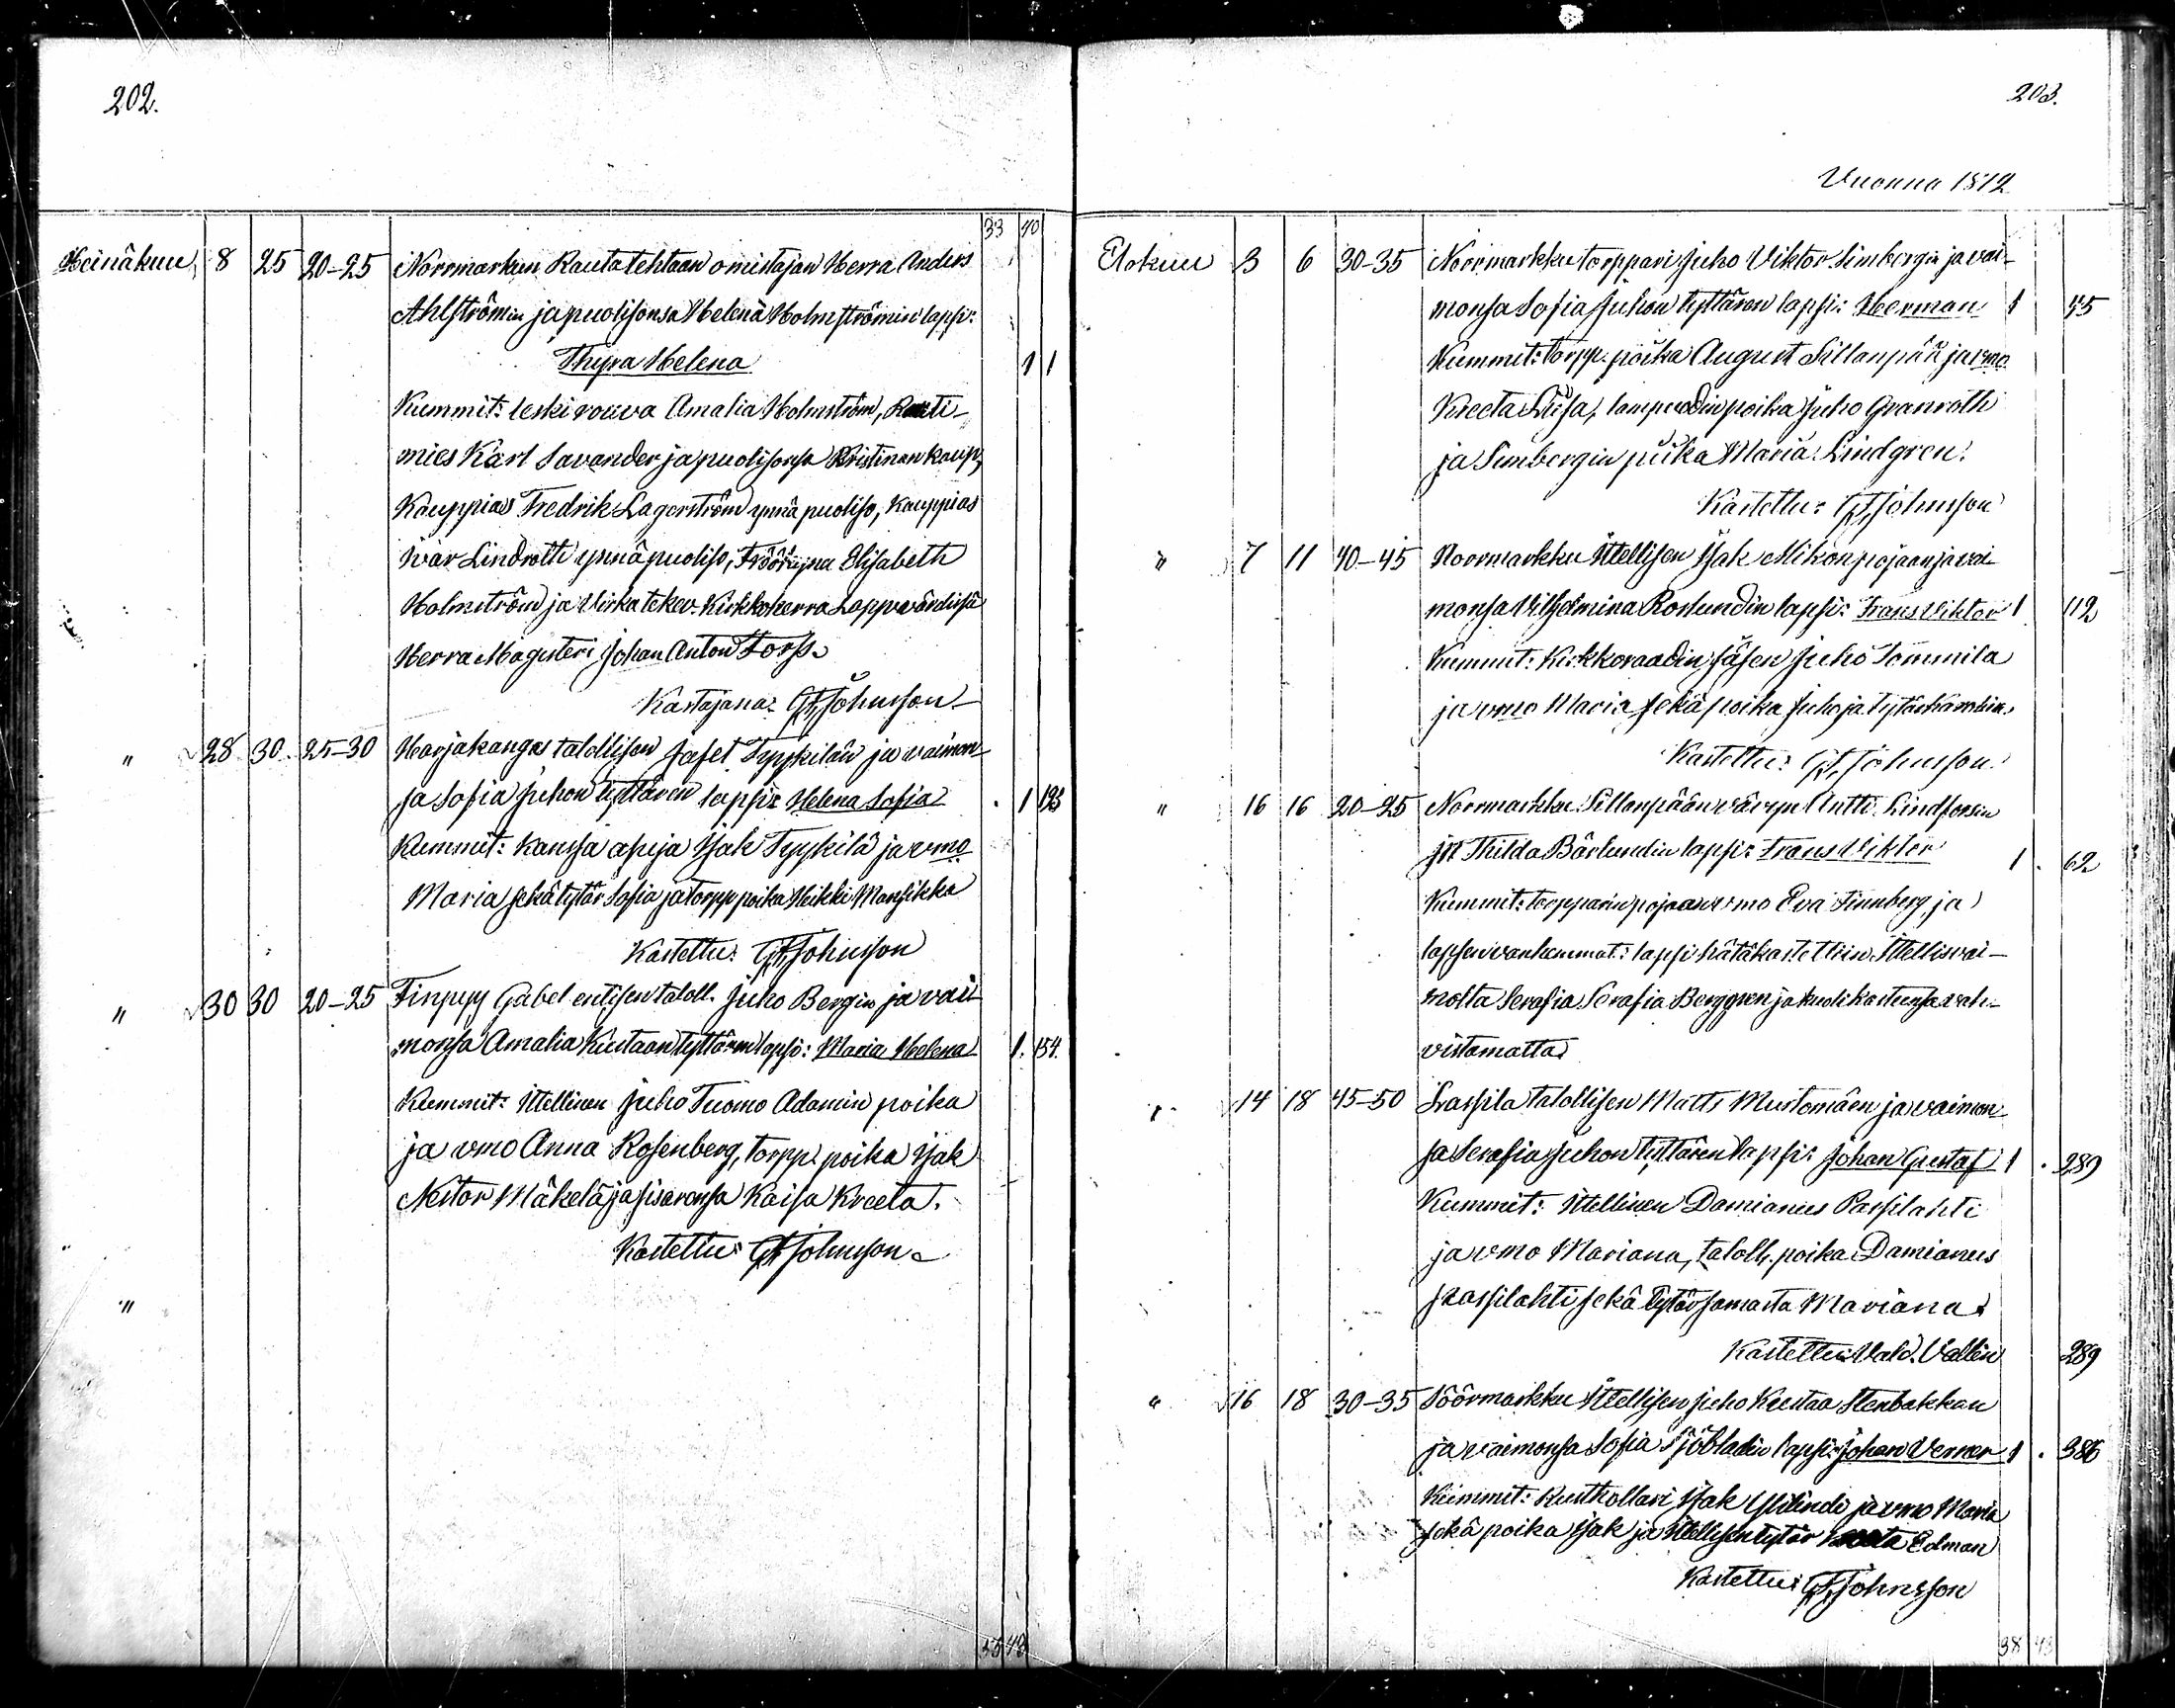 202.
33 40
Heinäkuu 8 25 20-25 Norrmarkun Rautatehtaan omistajan Herra Anders
Ahlströmin ja puolisonsa Helena Holmströmin lapsi:
Thyra Helena 1 1
Kummit: leskirouva Amalia Holmström, Raati-
mies Karl Savander ja puolisonsa Kristinan kaup,
Kauppias Fredrik Lagerström ynnä puoliso, Kauppias
Ivar Lindroth ynnä puoliso, Elisabeth
Holmström ja Virkatekev. Kirkkoherra Lappvärdissä
Herra Magisteri Johan Anton Forss.
Kastajana: Johnsson
" 28 30. 25-30 Harjakangas talollisen Jafet Tyykilän ja vaimon-
sa Sofia Juhon tyttären lapsi: Helena Sofia 1 193
Kummit: Kanssa apuja Isak Tyykilä ja vmo
Maria sekä tytär Sofia ja torpp poika Heikki Mansikka
Kastettu: Johnsson
" 30 30 20-25 Finpyy Gabel entisen taloll. Juho Bergin ja vai-
monsa Amalia Kustaan tyttären lapsi: Maria Helena 1. 154.
Kummit: Itellinen Juho Tuomo Adamin poika
ja vmo Anna Rosenberg, torpp. poika Isak
Nestor Mäkelä ja sisarensa Kaisa Kreeta.
Kastettu: Johnsson
"
35 42
203.
Vuonna 1872
Elokuu 3 6 30-35 Norrmarkku torppari Juho Viktor Simbergin ja vai-
monsa Sofia Juhon tyttären lapsi: Herman 1 45
Kummit: torpp. poika August Sillanpää ja vmo
Kreeta Liisa, lampuodin poika Juho Granroth
ja Simbergin piika Maria Lindgren.
Kastettu: Johnsson
" 7 11 40-45 Noormarkku Itellisen Isak Mikon pojan ja vai-
monsa Vilhelmina Roslundin lapsi: Frans Viktor 1 112
Kummit: Kirkkoraadin jäsen Juho Tommila
ja vmo Maria sekä poika Juho ja tytär
Kastettu: Johnsson.
" 16 16 20-25 Norrmarkku Sillanpään vävyn Antti Lindforsin
ja Thilda Bärlundin lapsi: Frans Viktor 1 . 62
Kummit: torpparin pojan vmo Eva Finnberg ja
lapsen vanhemmat: lapsi hätäkastettiin Itellisvai-
molta Serafia Serafia Berggren ja kuoli kasteensa vah-
vistamatta
" 14 18 45-50 Lassila talollisen Matts Mustomäen ja vaimon-
sa Serafia Juhon tyttären lapsi: Johan Gustaf 1 . 289
Kummit: Itellinen Damianus Passilahti
ja vmo Mariana, taloll. poika Damianus
Passilahti sekä tytär samasta Mariana.
Kastettu: Vald. Vallin 289
" 16 18 30-35 Söörmarkku Itellisen Juho Kustaa Stenbakkan
ja vaimonsa Sofia Sjöbladin lapsi: Johan Verner 1 . 386
Kummit: Rusthollari Isak Ylilindi ja vmo Maria
sekä poika Isak ja Itellisen tytär Edman
Kastettu: Johnsson
38 43